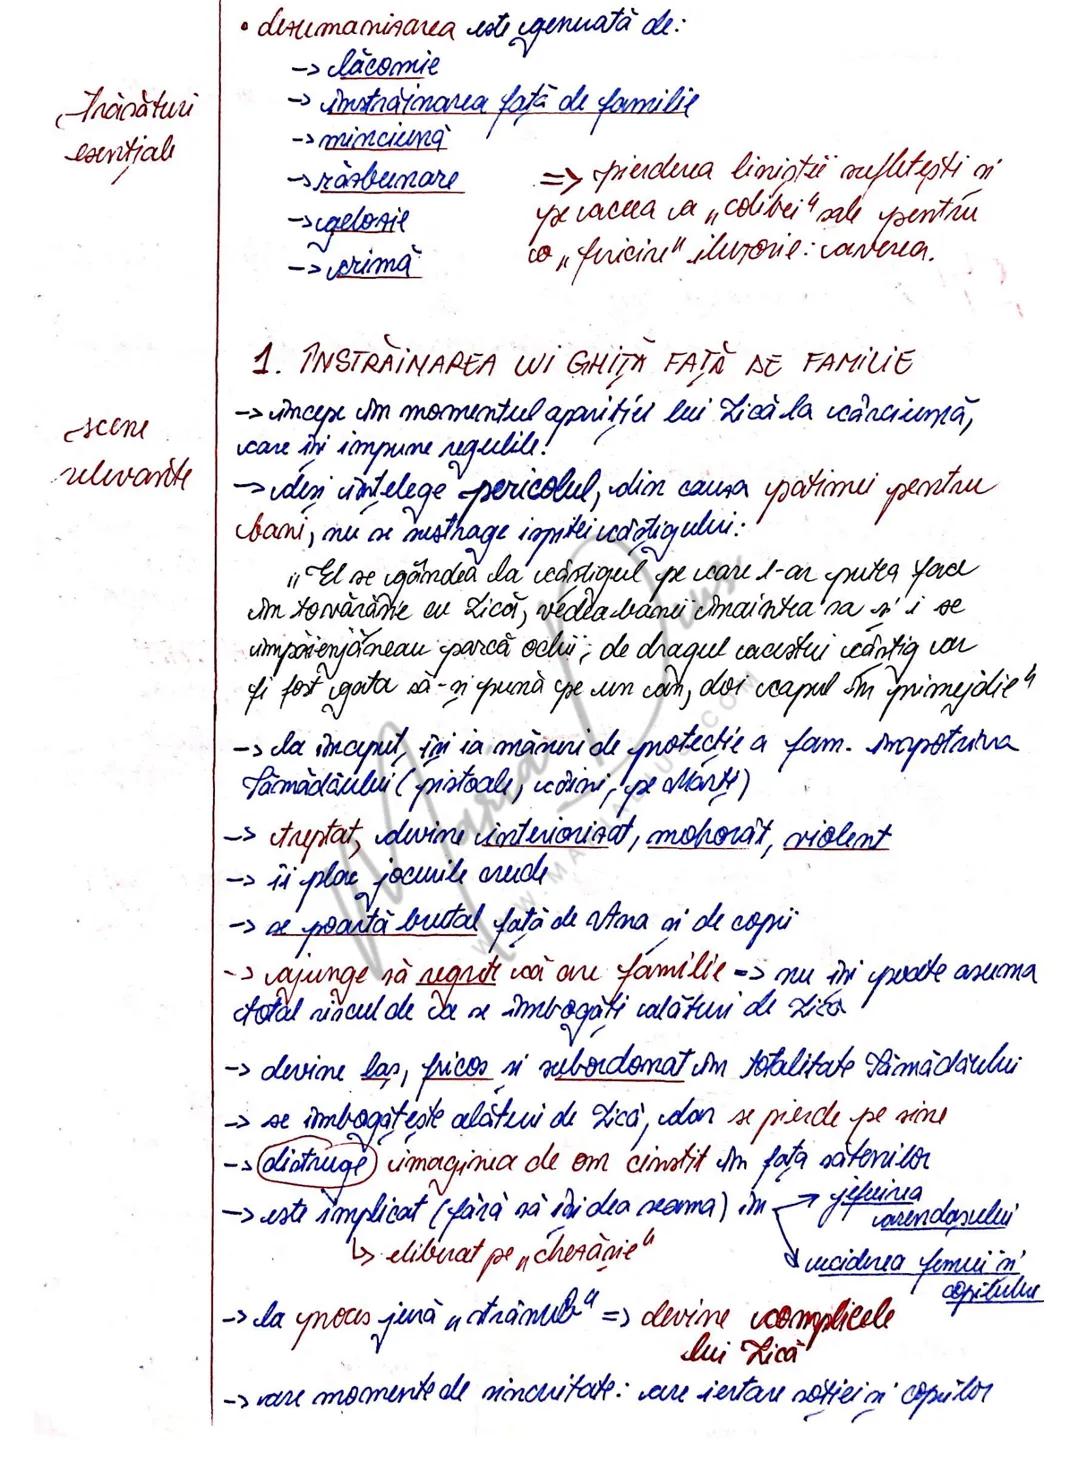 • dezumanizarea este generată de:
-> lăcomie
Trăsături
-> înstrăinarea față de familie
esențiale
-> minciună
-> răzbunare => pierderea liniștii sufletești și
-> gelozie pe aceea a „colibei" sale pentru
-> crimă o „fericire" iluzorie: averea.
1. ÎNSTRĂINAREA LUI GHIȚĂ FAȚĂ DE FAMILIE
scene
relevante
-> începe în momentul apariției lui Lică la cârciumă,
care îşi impune regulile!
-> deși înțelege pericolul, din cauza patimei pentru
bani, nu se sustrage ispitei câștigului:
„El se gândea la câștigul pe care l-ar putea face
în tovărășie cu Lică, vedea banii înaintea sa și i se
împăienjăneau parcă ochii; de dragul acestui câștig ar
fi fost gata să-și pună pe un an, doi capul în primejdie"
-> la început, își ia măsuri de protecție a fam. împotriva
Sămădăului (pistoale, câini, pe Marți)
-> treptat, devine interiorizat, mohorât, violent
-> îi plac jocurile crude
-> se poartă brutal față de Ana și de copii
-> ajunge să regrete că are familie => nu își poate asuma
total riscul de a se îmbogăți alături de Lică
-> devine laș, fricos și subordonat în totalitate Sămădăului
-> se îmbogățește alături de Lică, dar se pierde pe sine
-> distruge imaginea de om cinstit în fața sătenilor
-> este implicat (fără să își dea seama) în jefuirea
arendașului
eliberat pe „chezășie"
uciderea femeii și
copilului
-> la proces jură „strâmb" => devine complicele
lui Lică
-> rare momente de sinceritate: cere iertare soției și copiilor
Maria Dius
WWW.MARIADIUS.COM